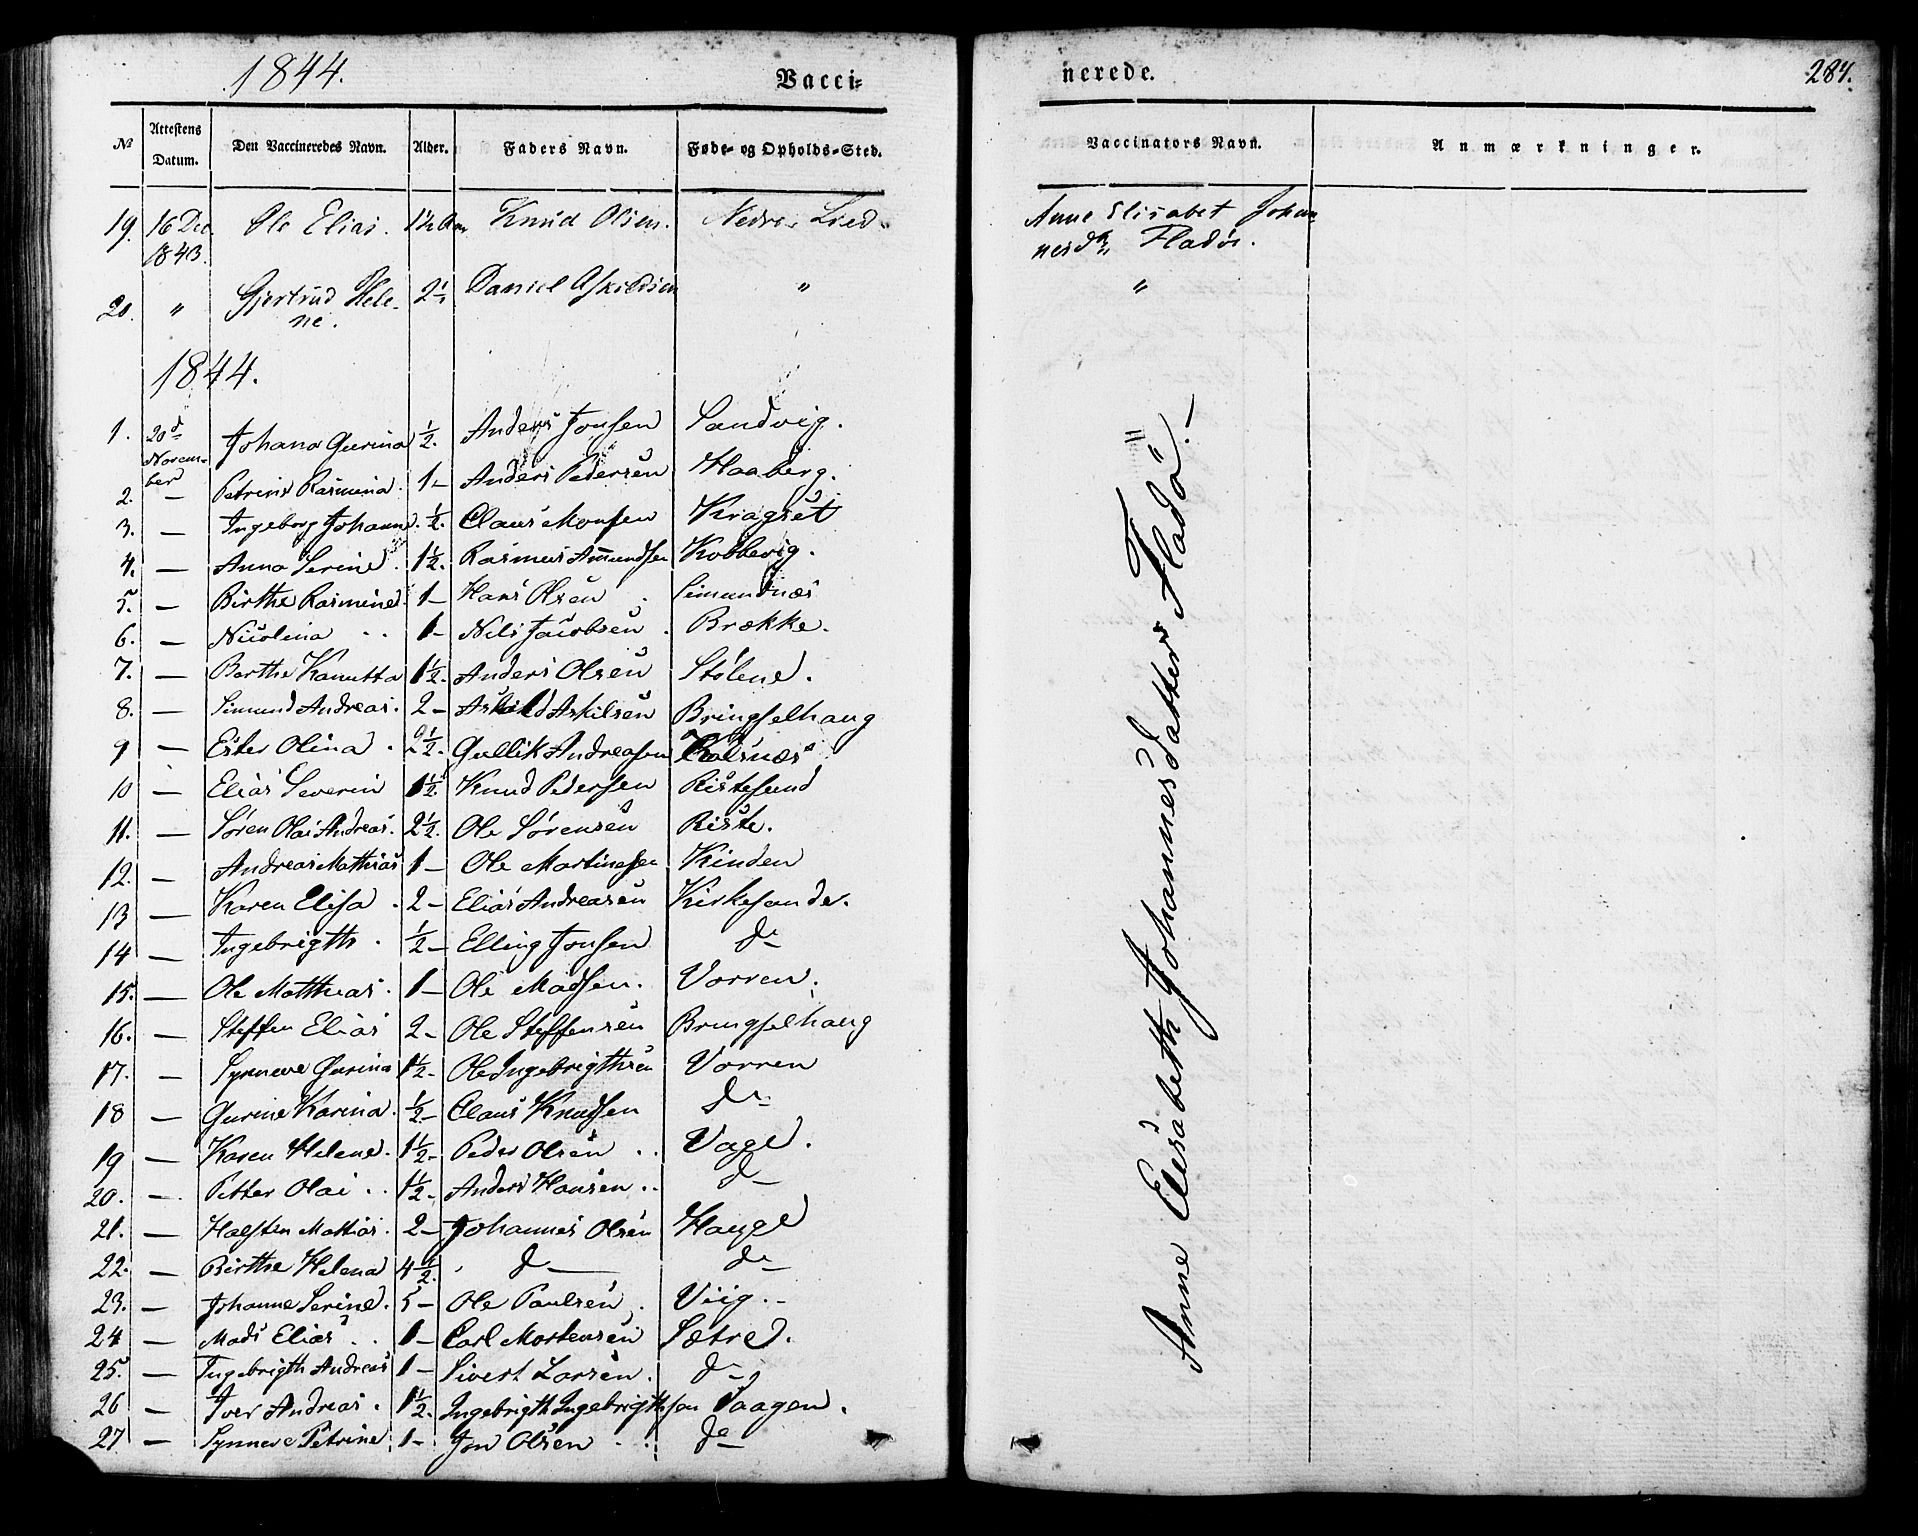 1844. Vacci-
№ Attestens Datum. Den Vaccineredes Navn. Alder. Faders Navn. Føde- og Opholds-Sted.
19. 16 Dec 1843. Ole Elias. 1½ Knud Olsen. Nedre Lied.
20. " Gjertrud Helene. Daniel Askildsen "
1844.
1. 20d November Johana Gurina ½. Anders Jonsen Sandvig.
2. — Petrine Rasmina. 1— Anders Pedersen Haaberg.
3. — Ingeborg Johanne. ½. Claus Monsen Kragset
4. — Anna Serine. 1½. Rasmus Amundsen Kobbevig.
5. — Birthe Rasmine. 1— Hans Olsen Simundnæs
6. — Nicolina 1— Nils Jacobsen. Brække.
7. — Berthe Kanutta 1½. Anders Olsen Stølene.
8. — Simund Andreas. 2— Askild Askilsen Bringselhaug
9 — Ester Olina. 2½. Gullik Andreasen Kalsnæs
10 — Elias Severin 1½. Knud Pedersen Ristesund
11. — Søren Olai Andreas. 2½. Ole Sørensen Riste.
12. — Andreas Mathias 1— Ole Martinesen Kinden
13 — Karen Elisa. 2— Elias Andreasen Kirkesande.
14 — Ingebrigth. ½— Elling Jonsen do
15. — Ole Matthias. 1— Ole Madsen. Vorren.
16. — Steffen Elias 2— Ole Steffensen Bringselhaug
17. — Synneve Gurina 1½. Ole Ingebrigthsen Vorren
18 — Gurine Karina. ½— Claus Knudsen do
19 — Karen Helene. 1½— Peder Olsen.. Vage.
20. — Petter Olai.. 1½. Anders Hansen.. do
21. — Halsten Mathias. 2— Johannes Olsen Hauge
22. — Birthe Helena 4½. do do
23. — Johanne Serine. 5— Ole Paulsen. Viig.-
24 — Mads Elias.. 1— Carl Mortensen Sætre.
25. — Ingebrigth Andreas 1— Sivert Larsen. do
26 — Iver Andreas. 1½. Ingebrigth Ingebrigthsen Vaagen.
27 — Synneve Petrine 1— Jon Olsen.. do
nerede. 284.
Vaccinators Navn. Anmærkninger.
Anne Elisabet Johan
nesdr. Fladø.
"
Anne Elisabeth Johannesdatter Fladø.—